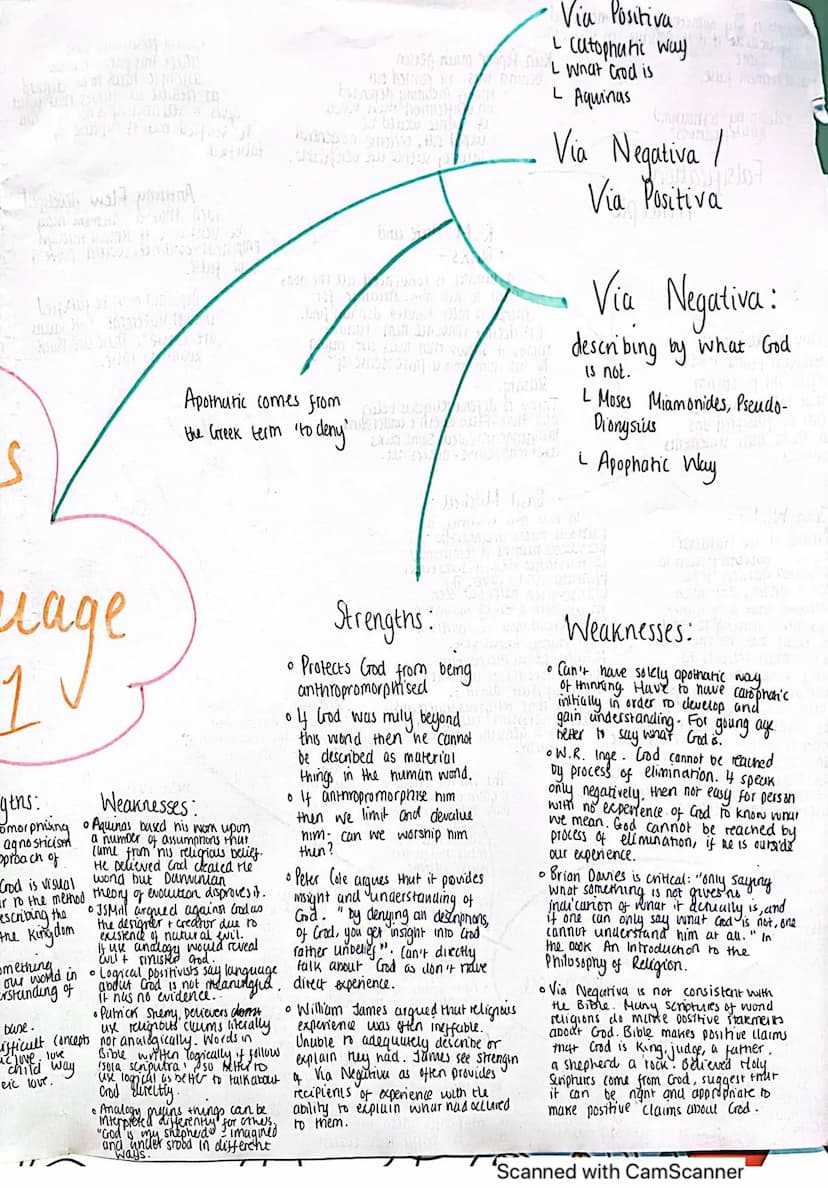 Via Positiva
└ Catophatic way
└ What God is
└ Aquinas
Via Negativa /
Via Positiva
Via Negativa:
describing by what God
is not.
└ Moses Miamonides, Pseudo-
Dionysius
└ Apophatic Way
Apothatic comes from
the Greek term 'to deny'
s
uage
1
Strengths:
• Protects God from being
anthropromorphised
• If God was truly beyond
this world then he cannot
be described as material
things in the human world.
• If anthropromorphise him
then we limit and devalue
him - can we worship him
then?
• Peter Cole argues that it provides
insight and understanding of
God. "by denying all descriptions,
of God, you get insight into God
rather unbelief". Can't directly
talk about God as don't have
direct experience.
• William James argued that religious
experience was often ineffable.
Unable to adequately describe or
explain they had. James see strength
of Via Negativa as often provides
recipients of experience with the
ability to explain what had occured
to them.
Weaknesses:
• Can't have solely apothatic way
of thinking. Have to have catophatic
initially in order to develop and
gain understanding. For young age
better to say what God is.
• W.R. Inge. God cannot be reached
by process of elimination. If speak
only negatively, then not easy for person
with no experience of God to know what
we mean. God cannot be reached by
process of elimination, if he is outside
our experience.
• Brian Davies is critical: "only saying
what something is not gives no
indication of what it actually is, and
if one can only say what God is not, one
cannot understand him at all." In
the book An Introduction to the
Philosophy of Religion.
• Via Negativa is not consistent with
the Bible. Many scriptures of world
religions do make positive statements
about God. Bible makes positive claims
that God is King, judge, a father,
a shepherd a 'rock'. Believed Holy
Scriptures come from God, suggest that
it can be right and appropriate to
make positive claims about God.
gths:
omorphising
agnosticism
proach of
God is visual
ur to the method
escribing the
the Kingdom
omething
our world in
rstanding of
base.
ifficult concepts
love
child way
eic love.
Weaknesses:
• Aquinas based his work upon
a number of assumptions that
came from his religious belief.
He believed God created the
world but Darwinian
theory of evolution disproves it.
• JSMill argued against God as
the designer + creator due to
existence of natural evil.
If use analogy would reveal
evil + finished God.
• Logical positivists say language
about God is not meaningful,
it has no evidence.
• Patrick Sherry, believers don't
use religious claims literally
not analogically. Words in
Bible written logically if follow
'sola scriptura' so better to
use logical as better to talk about
God directly.
• Analogy means things can be
interpreted differently for others,
"God is my shepherd" - imagined
and under stood in different
ways.
Scanned with CamScanner